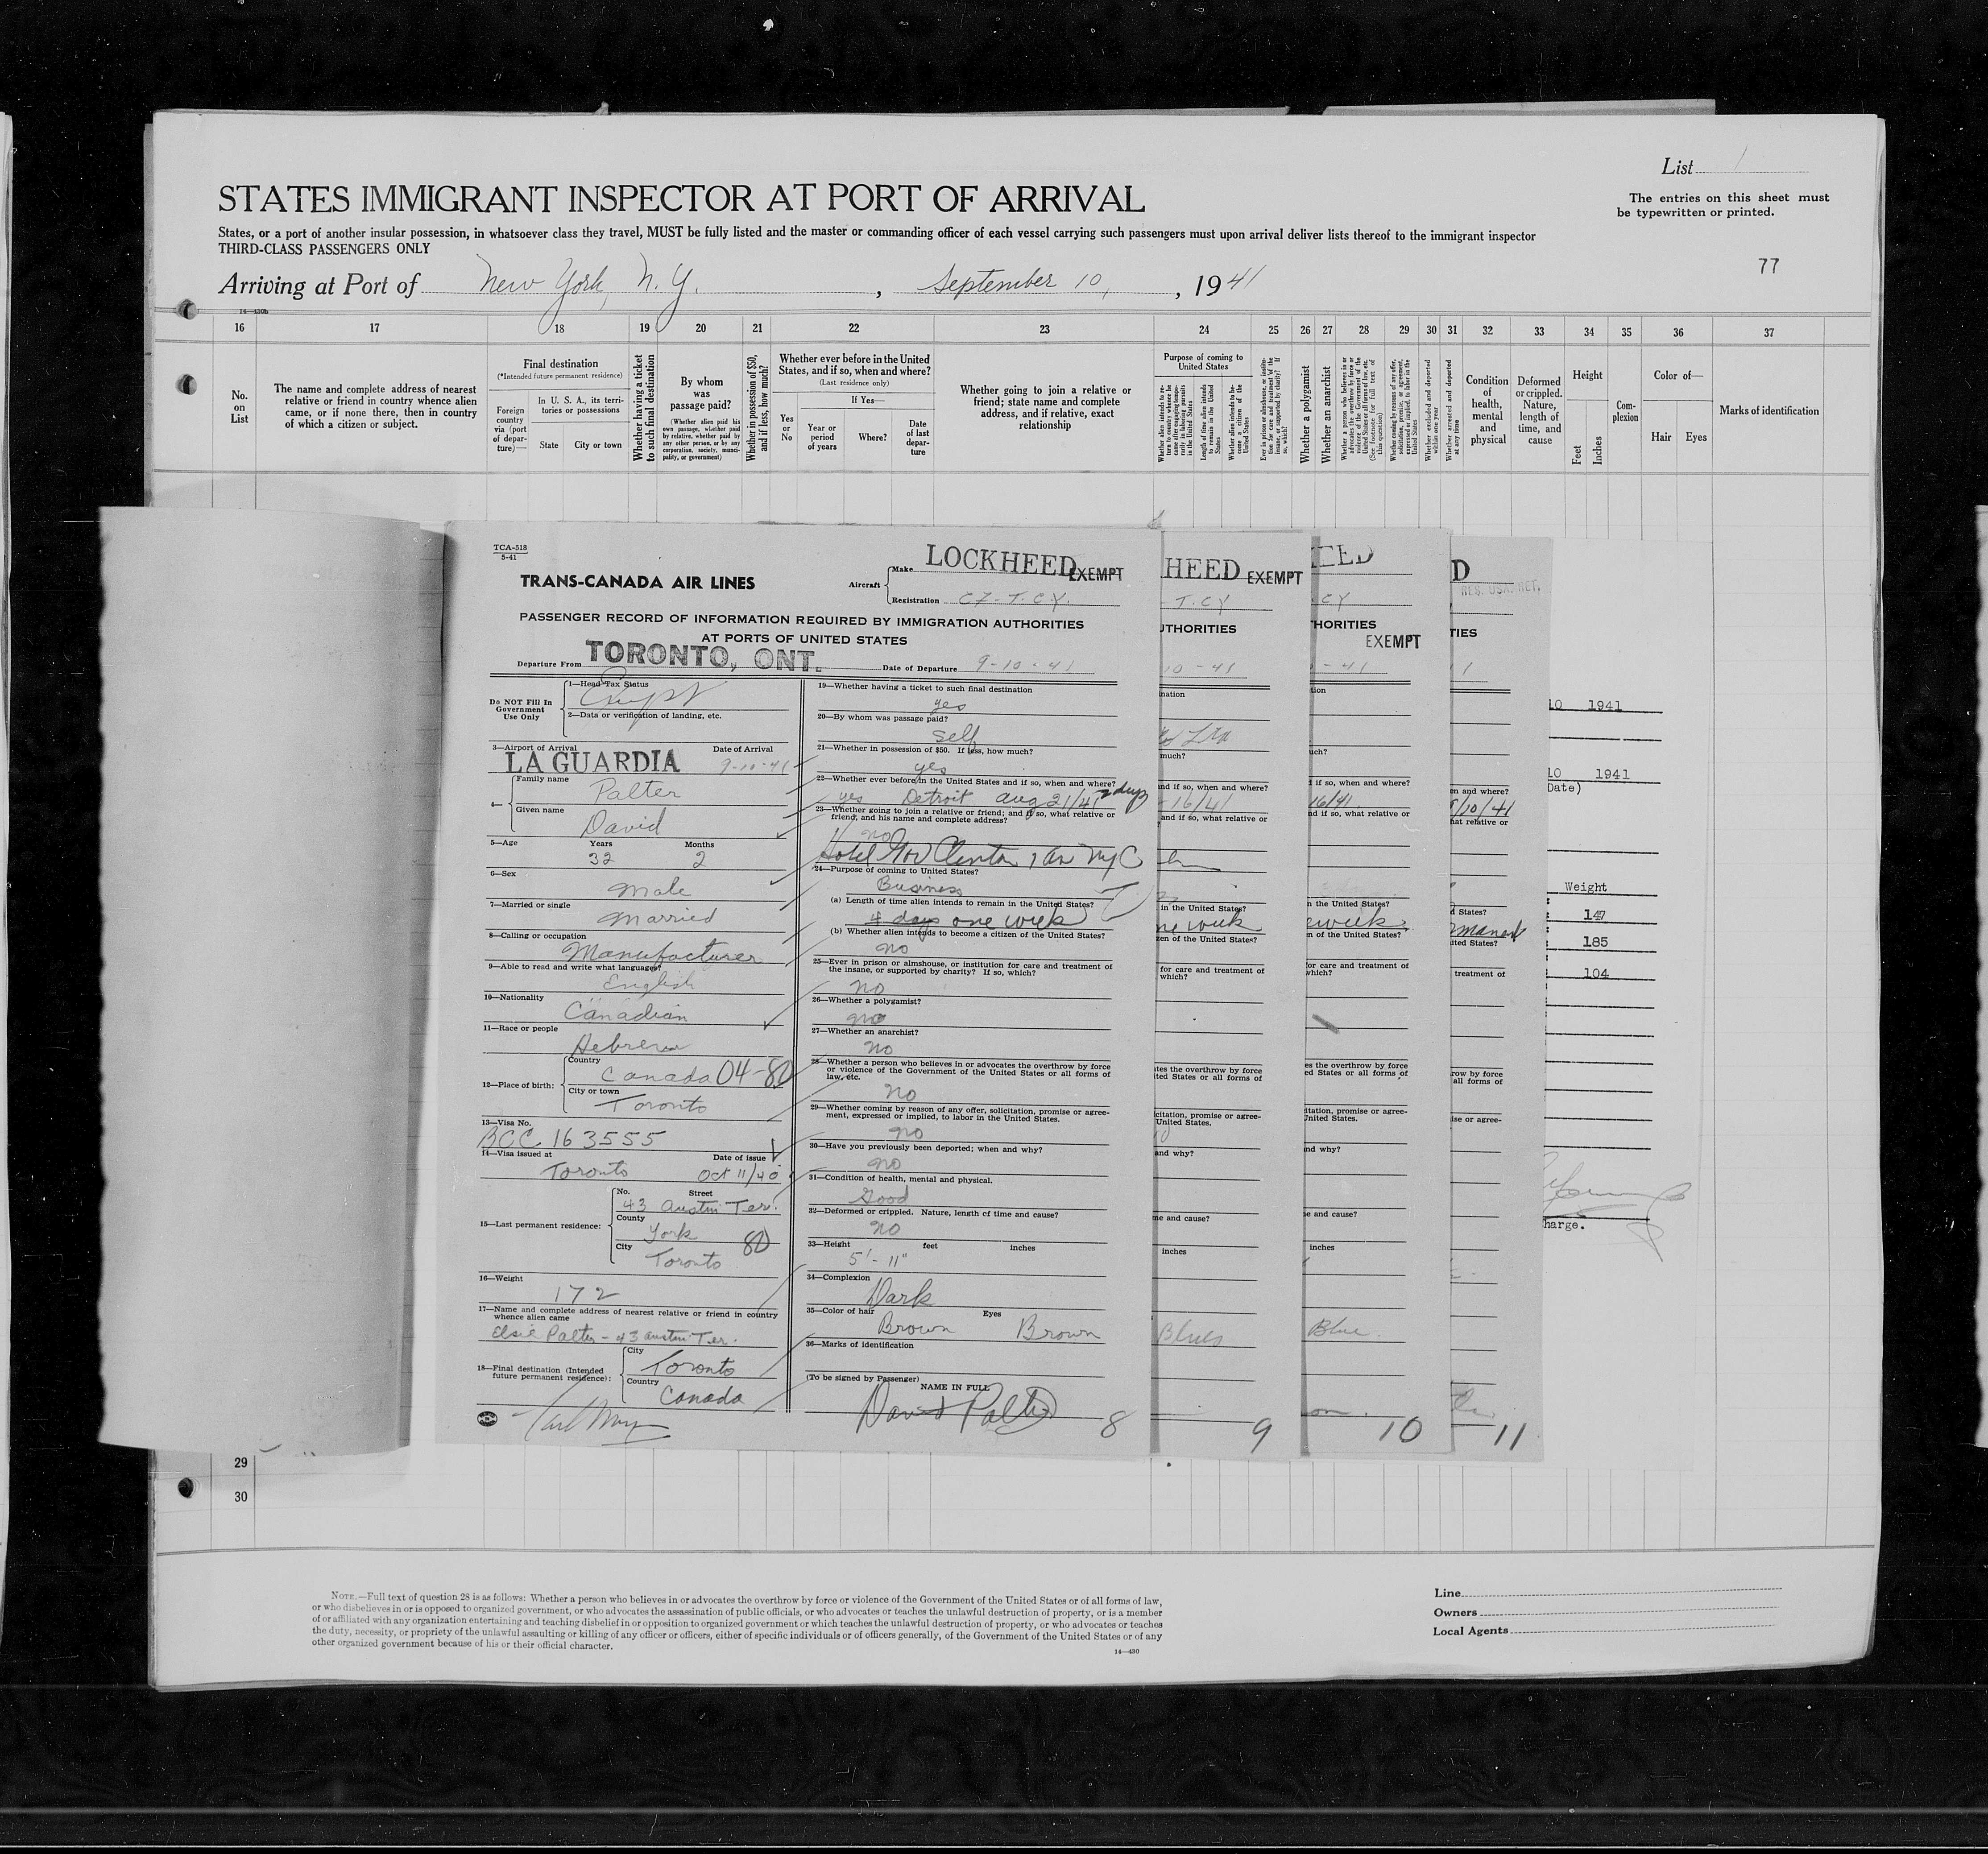 List 1
STATES IMMIGRANT INSPECTOR AT PORT OF ARRIVAL
The entries on this sheet must
be typewritten or printed.
States, or a port of another insular possession, in whatsoever class they travel, MUST be fully listed and the master or commanding officer of each vessel carrying such passengers must upon arrival deliver lists thereof to the immigrant inspector
THIRD-CLASS PASSENGERS ONLY
77
Arriving at Port of New York, N.Y. , September 10, , 1941
14—430b
16 17 18 19 20 21 22 23 24 25 26 27 28 29 30 31 32 33 34 35 36 37
No.
on
List
The name and complete address of nearest
relative or friend in country whence alien
came, or if none there, then in country
of which a citizen or subject.
Final destination
(*Intended future permanent residence)
Foreign
country
via (port
of depar-
ture)—
In U. S. A., its terri-
tories or possessions
State City or town
Whether having a ticket
to such final destination
By whom
was
passage paid?
(Whether alien paid his
own passage, whether paid
by relative, whether paid by
any other person, or by any
corporation, society, munici-
pality, or government)
Whether in possession of $50,
and if less, how much?
Whether ever before in the United
States, and if so, when and where?
(Last residence only)
Yes
or
No
If Yes—
Year or
period
of years
Where?
Date
of last
depar-
ture
Whether going to join a relative or
friend; state name and complete
address, and if relative, exact
relationship
Purpose of coming to
United States
Length of time alien intends
to remain in the United
States
Whether alien intends to be-
come a citizen of the
United States
Whether a polygamist
Whether an anarchist
Whether excluded and deported
within one year
Whether arrested and deported
at any time
Condition
of
health,
mental
and
physical
Deformed
or crippled.
Nature,
length of
time, and
cause
Height
Feet
Inches
Com-
plexion
Color of—
Hair Eyes
Marks of identification
TCA-518
5-41
TRANS-CANADA AIR LINES
Aircraft
Make LOCKHEED EXEMPT
Registration CF-T.C.Y.
PASSENGER RECORD OF INFORMATION REQUIRED BY IMMIGRATION AUTHORITIES
AT PORTS OF UNITED STATES
Departure From TORONTO, ONT. Date of Departure 9-10-41
Do NOT Fill In
Government
Use Only
1—Head Tax Status
2—Data or verification of landing, etc.
3—Airport of Arrival Date of Arrival
LA GUARDIA 9-10-41
4—
Family name
Palter
Given name
David
5—Age Years Months
32 2
6—Sex
Male
7—Married or single
Married
8—Calling or occupation
Manufacturer
9—Able to read and write what languages?
English
10—Nationality
Canadian
11—Race or people
Hebrew
12—Place of birth:
Country
Canada 04-80
City or town
Toronto
13—Visa No.
BCC 163555
14—Visa issued at Date of issue
Toronto Oct 11/40
15—Last permanent residence:
No. Street
43 Austin Ter.
County
York
80
City
Toronto
16—Weight
172
17—Name and complete address of nearest relative or friend in country
whence alien came
Elsie Palter - 43 Austin Ter.
18—Final destination (Intended
future permanent residence):
City
Toronto
Country
Canada
19—Whether having a ticket to such final destination
yes
20—By whom was passage paid?
Self
21—Whether in possession of $50. If less, how much?
yes
22—Whether ever before in the United States and if so, when and where?
yes Detroit Aug 21/41 2 days
23—Whether going to join a relative or friend; and if so, what relative or
friend, and his name and complete address?
no
Hotel Gov Clinton 7 Av NYC
24—Purpose of coming to United States?
Business
(a) Length of time alien intends to remain in the United States?
4 days one week
(b) Whether alien intends to become a citizen of the United States?
no
25—Ever in prison or almshouse, or institution for care and treatment of
the insane, or supported by charity? If so, which?
no
26—Whether a polygamist?
no
27—Whether an anarchist?
no
28—Whether a person who believes in or advocates the overthrow by force
or violence of the Government of the United States or all forms of
law, etc.
no
29—Whether coming by reason of any offer, solicitation, promise or agree-
ment, expressed or implied, to labor in the United States.
no
30—Have you previously been deported; when and why?
no
31—Condition of health, mental and physical.
Good
32—Deformed or crippled. Nature, length of time and cause?
no
33—Height feet inches
5'-11"
34—Complexion
Dark
35—Color of hair Eyes
Brown Brown
36—Marks of identification
(To be signed by Passenger)
NAME IN FULL
David Palter
8
HEED EXEMPT
T.CY
THORITIES
10-41
nation
much?
and if so, when and where?
-16/41
and if so, what relative or
in the United States?
one week
zen of the United States?
for care and treatment of
which?
ates the overthrow by force
ited States or all forms of
citation, promise or agree-
United States.
and why?
me and cause?
inches
Blues
9
EED
CY
HORITIES
EXEMPT
-41
tion
uch?
if so, when and where?
16/41
nd if so, what relative or
n the United States?
e week
n of the United States?
or care and treatment of
which?
es the overthrow by force
ed States or all forms of
itation, promise or agree-
United States.
nd why?
e and cause?
inches
Blue
10
D
RES. USA. RET.
TIES
1
en and where?
9/10/41
hat relative or
d States?
rmanent
ited States?
treatment of
row by force
all forms of
ise or agree-
11
10 1941
10 1941
Date)
Weight
147
185
104
harge.
29
30
NOTE.—Full text of question 28 is as follows: Whether a person who believes in or advocates the overthrow by force or violence of the Government of the United States or of all forms of law,
or who disbelieves in or is opposed to organized government, or who advocates the assassination of public officials, or who advocates or teaches the unlawful destruction of property, or is a member
of or affiliated with any organization entertaining and teaching disbelief in or opposition to organized government or which teaches the unlawful destruction of property, or who advocates or teaches
the duty, necessity, or propriety of the unlawful assaulting or killing of any officer or officers, either of specific individuals or of officers generally, of the Government of the United States or of any
other organized government because of his or their official character.
14—430
Line
Owners
Local Agents